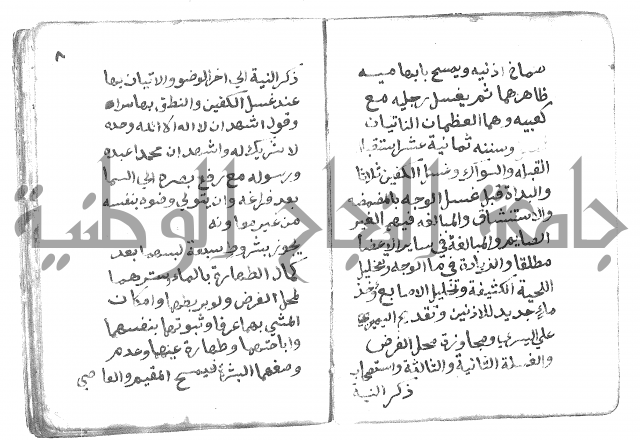 سماخ اذنيه ويمسح بابهاميه
ظاهرهما ثم يغسل رجليه مع
كعبيه وهما العظمان الناتيان
وسننه ثمانية عشر استقبال
القبله والسواك وغسل الكفين ثلاثا
والبداة قبل غسل الوجه بالمضمضه
والاستنشاق والمبالغه فيهم الغير
الصايم والمبالغة في ساير الاعضا
مطلقا والزيادة في ما الوجه وتخليل
اللحية الكثيفة وتخليل الاصابع واخذ
ماء جديد للاذنين وتقديم اليمنى
على اليسرى ومجاوزة محل الفرض
والغسلة الثانية والثالثة واستصحاب
ذكر النية
٨
ذكر النية الى اخر الوضو والاتيان بها
عند غسل الكفين والنطق بها سرا
وقول اشهد ان لا اله الا الله وحده
لا شريك له واشهد ان محمدا عبده
ورسوله مع رفع بصره الى السما
بعد فراغه وان يتولى وضوه بنفسه
من غير معاونه
يجوز بشروط سبعة لبسهما بعد
كمال الطهارة بالماء وسترهما
لمحل الفرض ولو بربطهما وامكان
المشي بهما عرفا وثبوتها بنفسهما
واباحتهما وطهارة عينهما وعدم
وصفهما البشرة فيمسح المقيم والعاصي
جامعة النجاح الوطنية